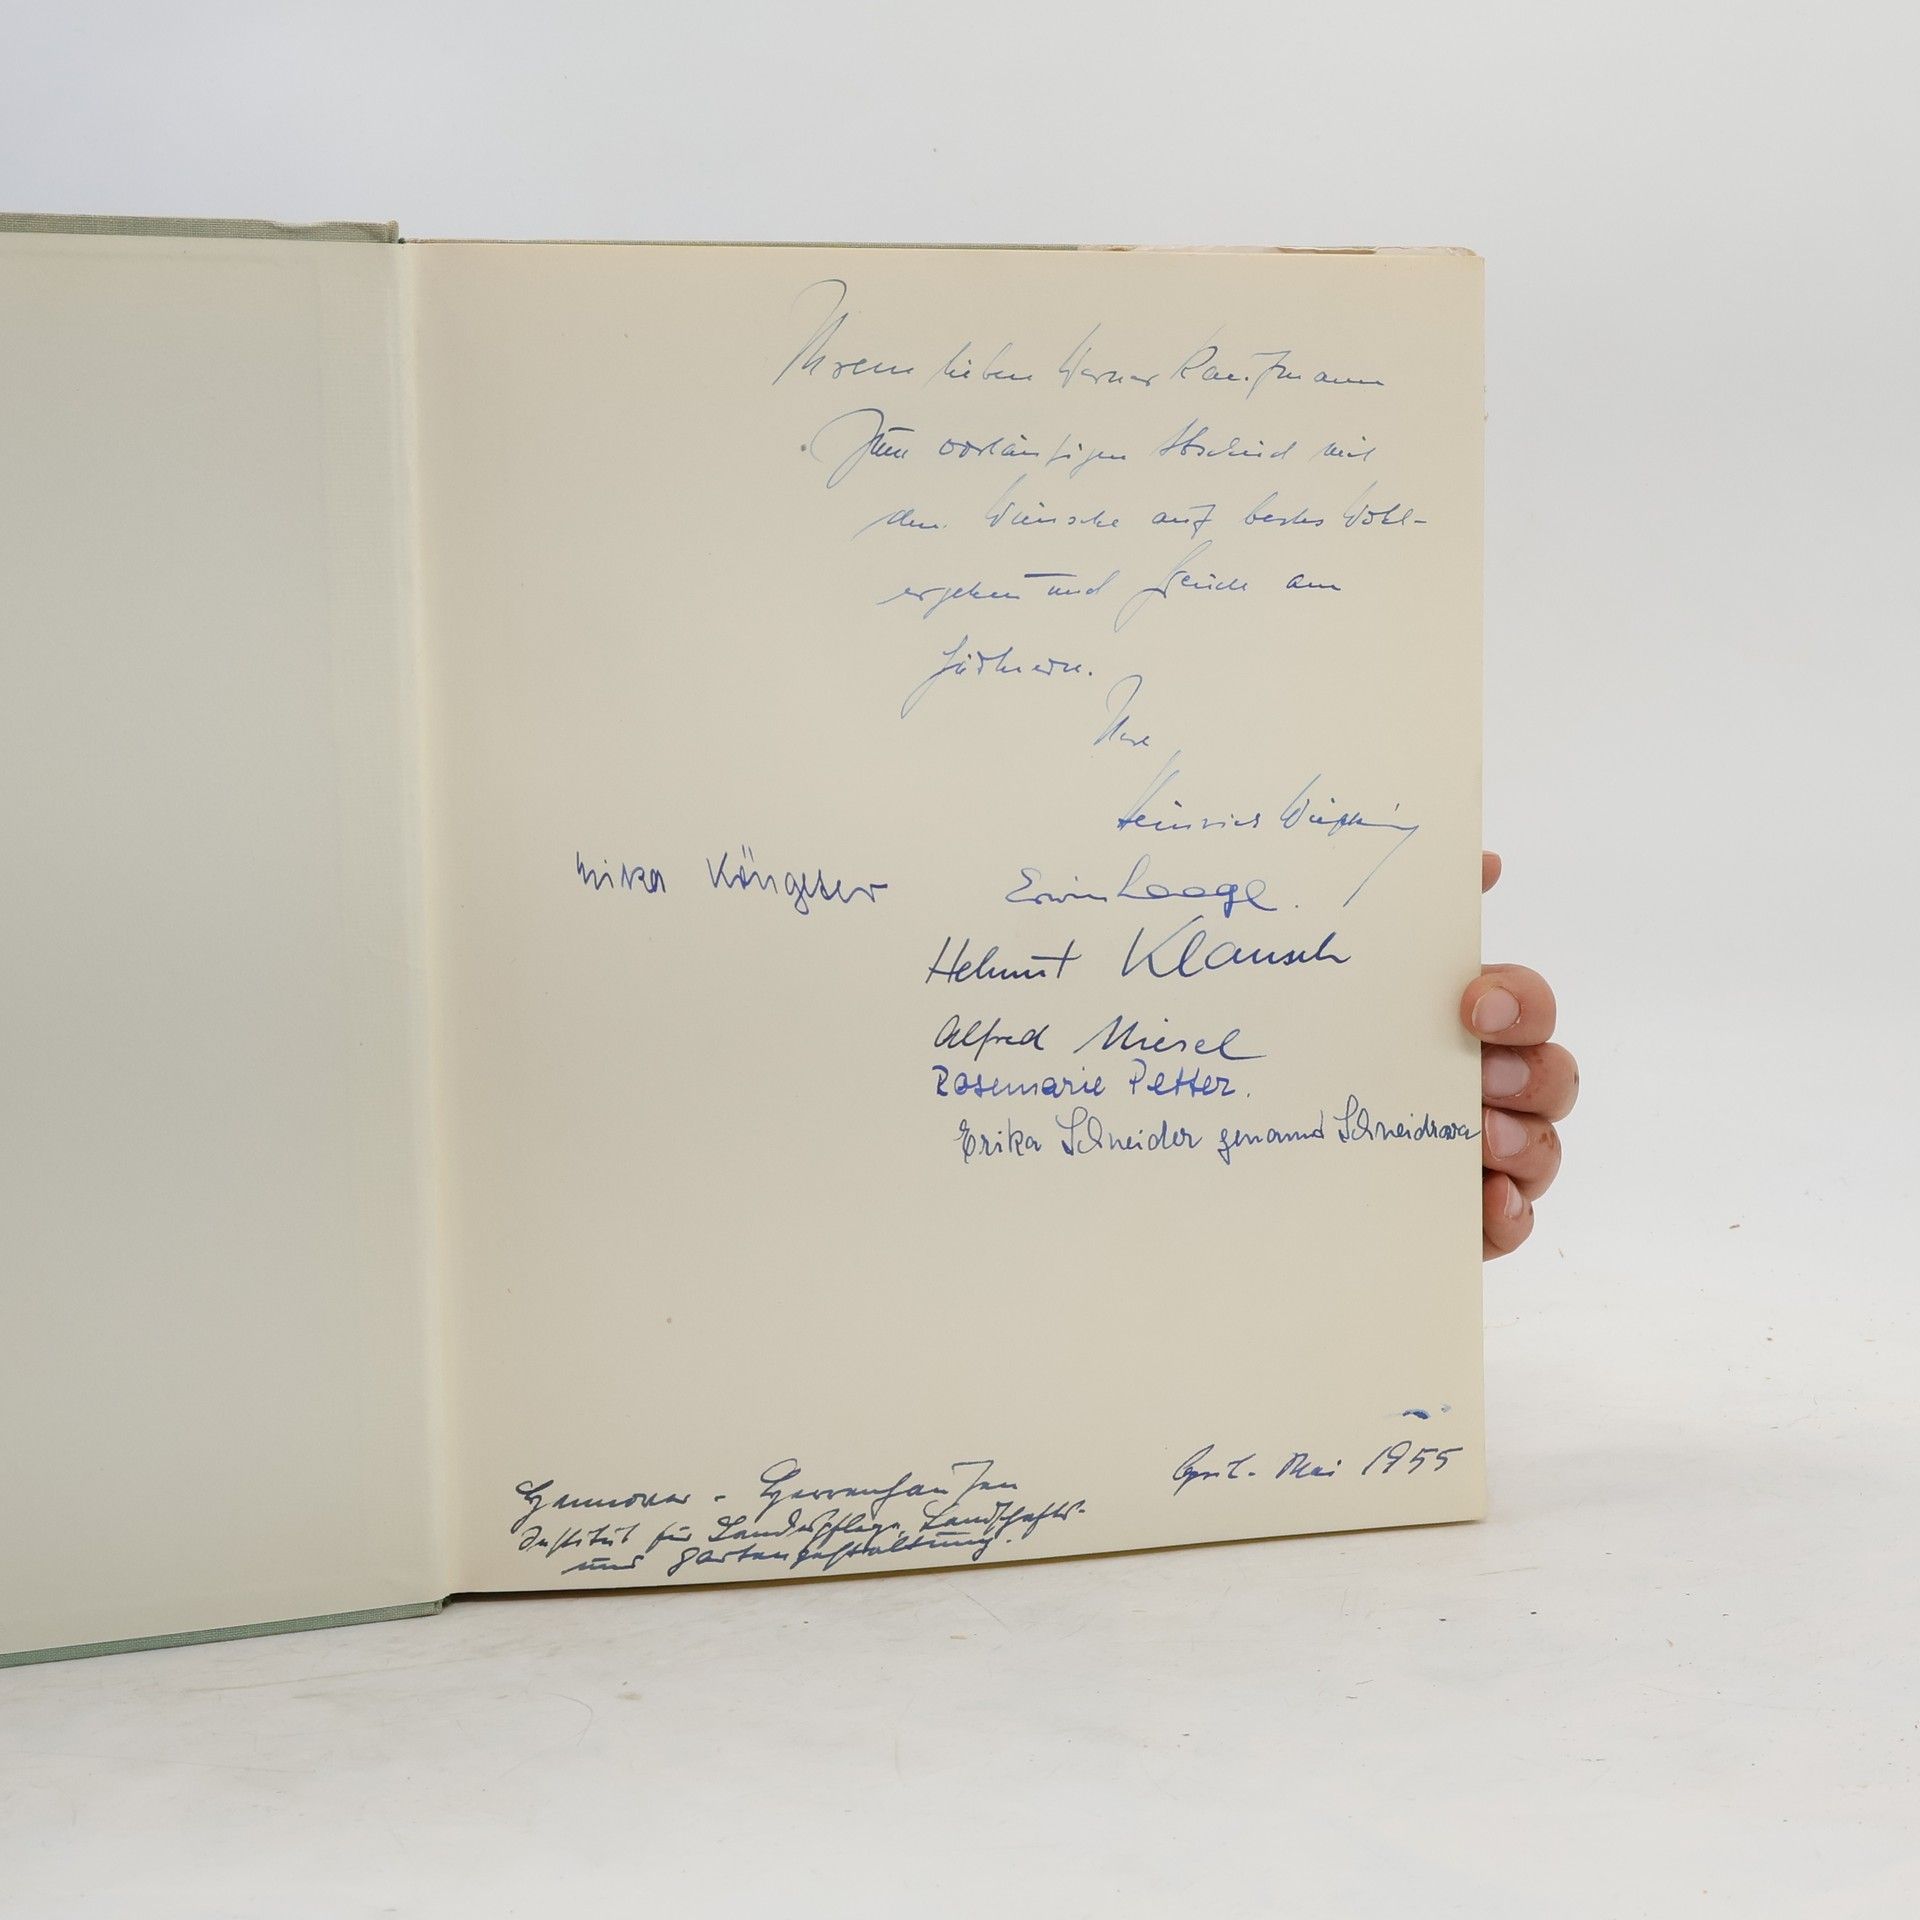 Ihrem lieben Werner Kaufmann
zum vorläufigen Abschied mit
den Wünschen auf bestes Wohl-
ergehen und Freude am
Gärtnern.
Ihre
Heinrich Wiepking
Erwin Laage.
Köngeter
Helmut Klausch
Alfred Miesel
Rosemarie Petter.
Erika Schneider genannt Schneidrowa
April - Mai 1955
Hannover - Herrenhausen
Institut für Landespflege, Landschafts-
und Gartengestaltung.